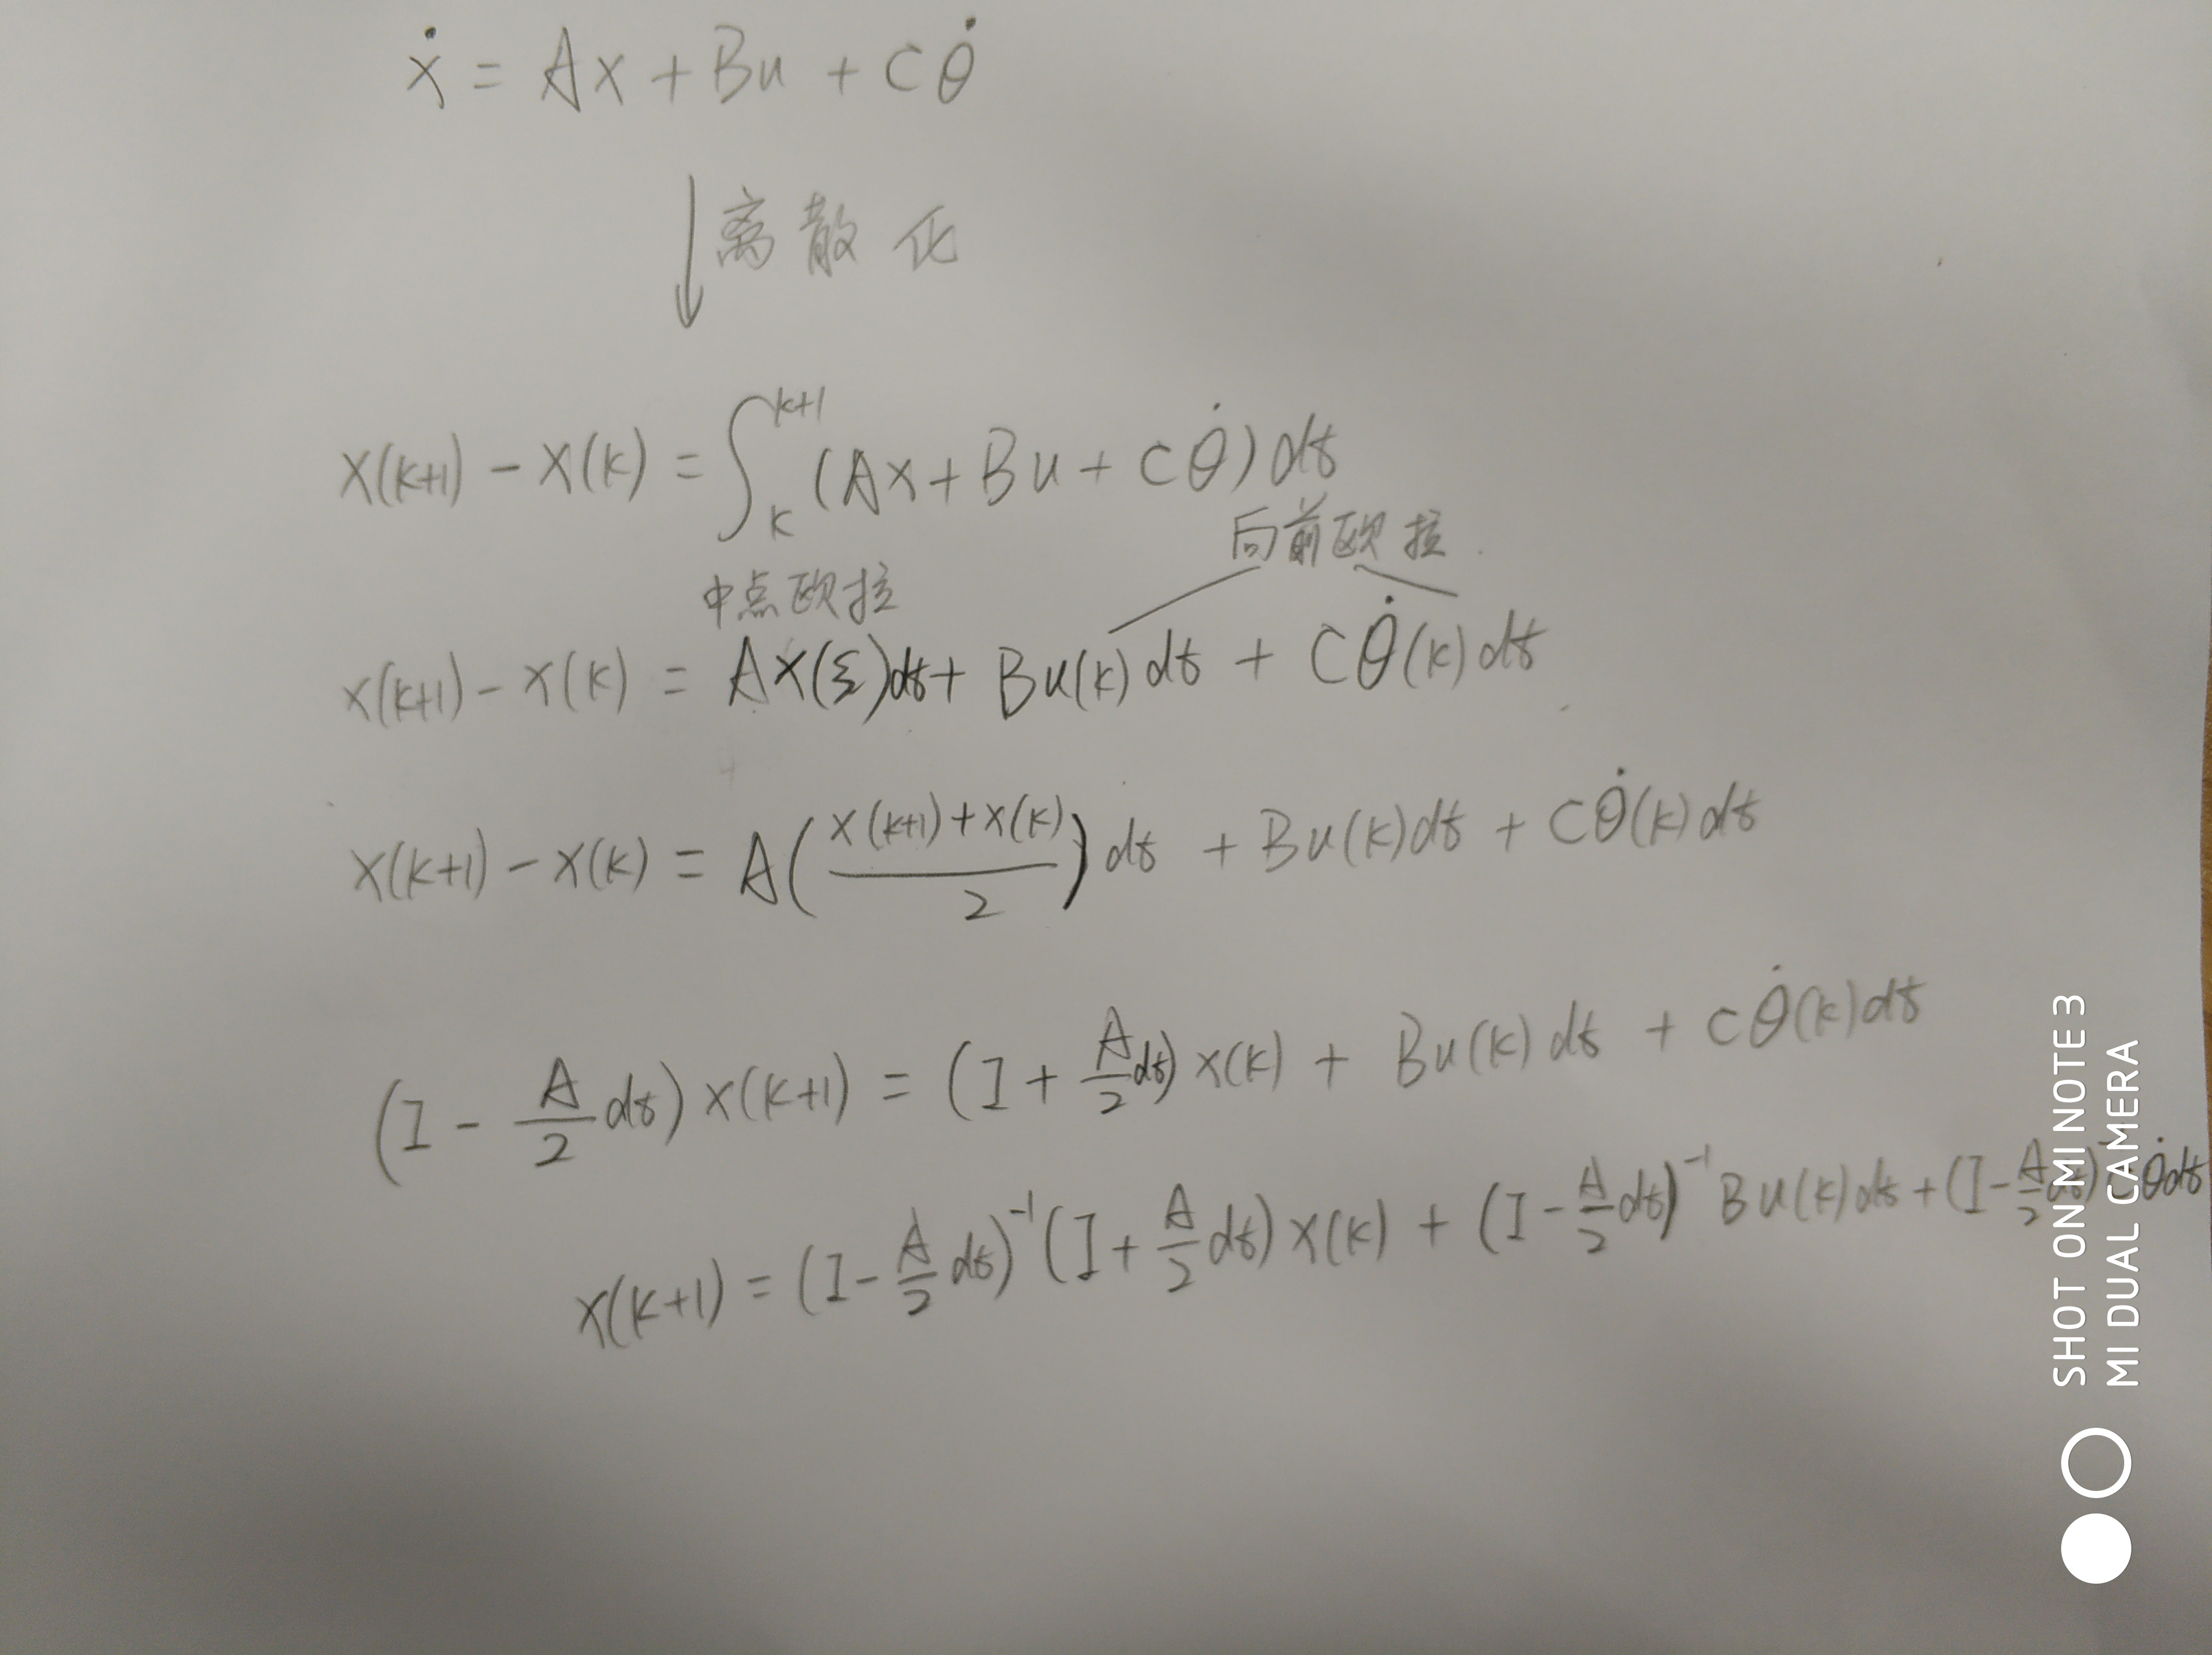 ẋ = Ax + Bu + Cθ̇
离散化
x(k+1) - x(k) = ∫ₖᵏ⁺¹ (Ax + Bu + Cθ̇)dt
中点欧拉
向前欧拉
x(k+1) - x(k) = Ax(ξ)dt + Bu(k)dt + Cθ̇(k)dt
x(k+1) - x(k) = A((x(k+1)+x(k))/2)dt + Bu(k)dt + Cθ̇(k)dt
(I - A/2 dt)x(k+1) = (I + A/2 dt)x(k) + Bu(k)dt + Cθ̇(k)dt
x(k+1) = (I - A/2 dt)⁻¹(I + A/2 dt)x(k) + (I - A/2 dt)⁻¹Bu(k)dt + (I - A/2 dt)⁻¹Cθ̇dt
SHOT ON MI NOTE 3
MI DUAL CAMERA